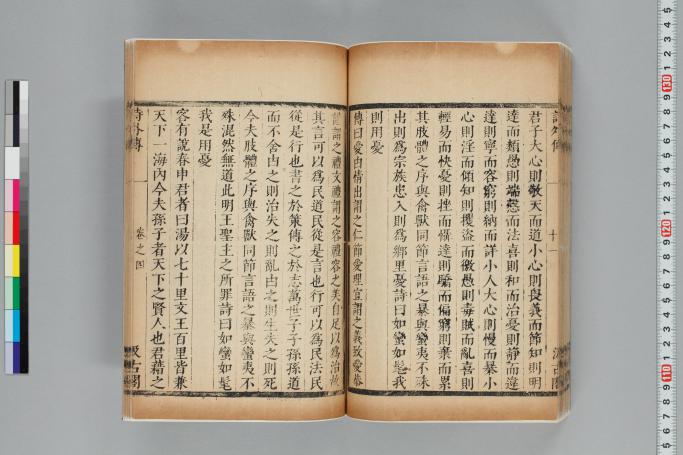 詩外傳
十一
汲古閣
君子大心則敬天而道小心則畏義而節知則明
達而類愚則端慤而法喜則和而治憂則靜而違
達則寧而容窮則納而詳小人大心則慢而暴小
心則淫而傾知則攫盜而徼愚則毒賊而亂喜則
輕易而快憂則挫而懾達則驕而偏窮則棄而累
其肢體之序與禽獸同節言語之暴與蠻夷不殊
出則為宗族患入則為鄉里憂詩曰如蠻如髦我
則用憂
傳曰愛由情出謂之仁節愛理宜謂之義致愛恭
謹謂之禮文禮謂之容禮容之美自足以為治故
其言可以為民道民從是言也行可以為民法民
從是行也書之於策傳之於志萬世子子孫孫道
而不舍由之則治失之則亂由之則生失之則死
今夫肢體之序與禽獸同節言語之暴與蠻夷不
殊混然無道此明王聖主之所罪詩曰如蠻如髦
我是用憂
客有說春申君者曰湯以七十里文王百里皆兼
天下一海內今夫孫子者天下之賢人也君藉之
詩外傳
卷之四
汲古閣